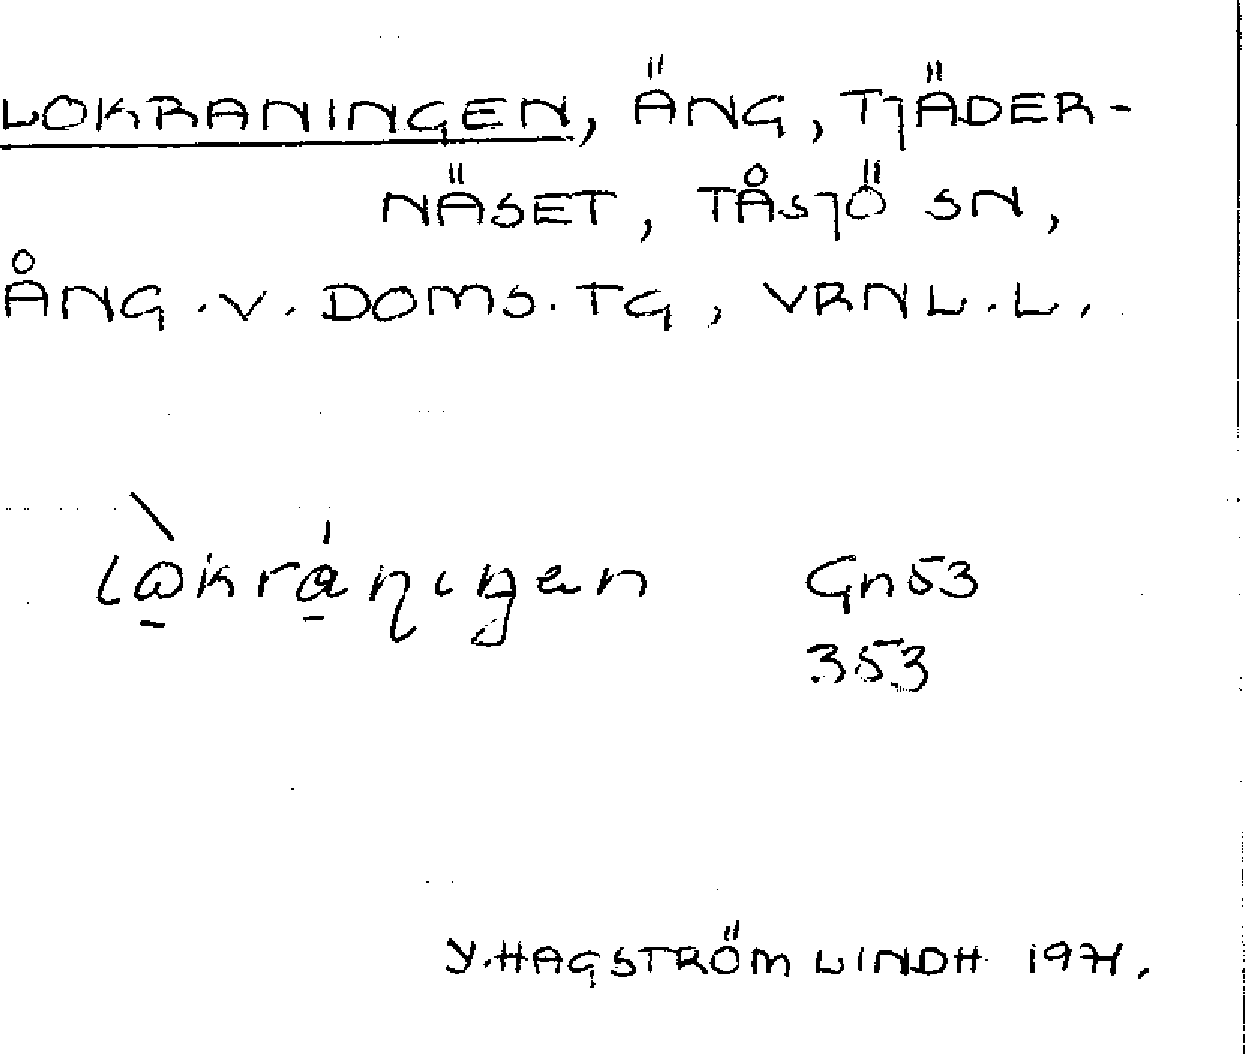 LOKRANINGEN, ÄNG, TJÄDER-
NÄSET, TÅSJÖ SN,
ÅNG.V. DOMS.TG, VRNL.L.
Gn53
353
Y.HAGSTRÖM LINDH 1971.